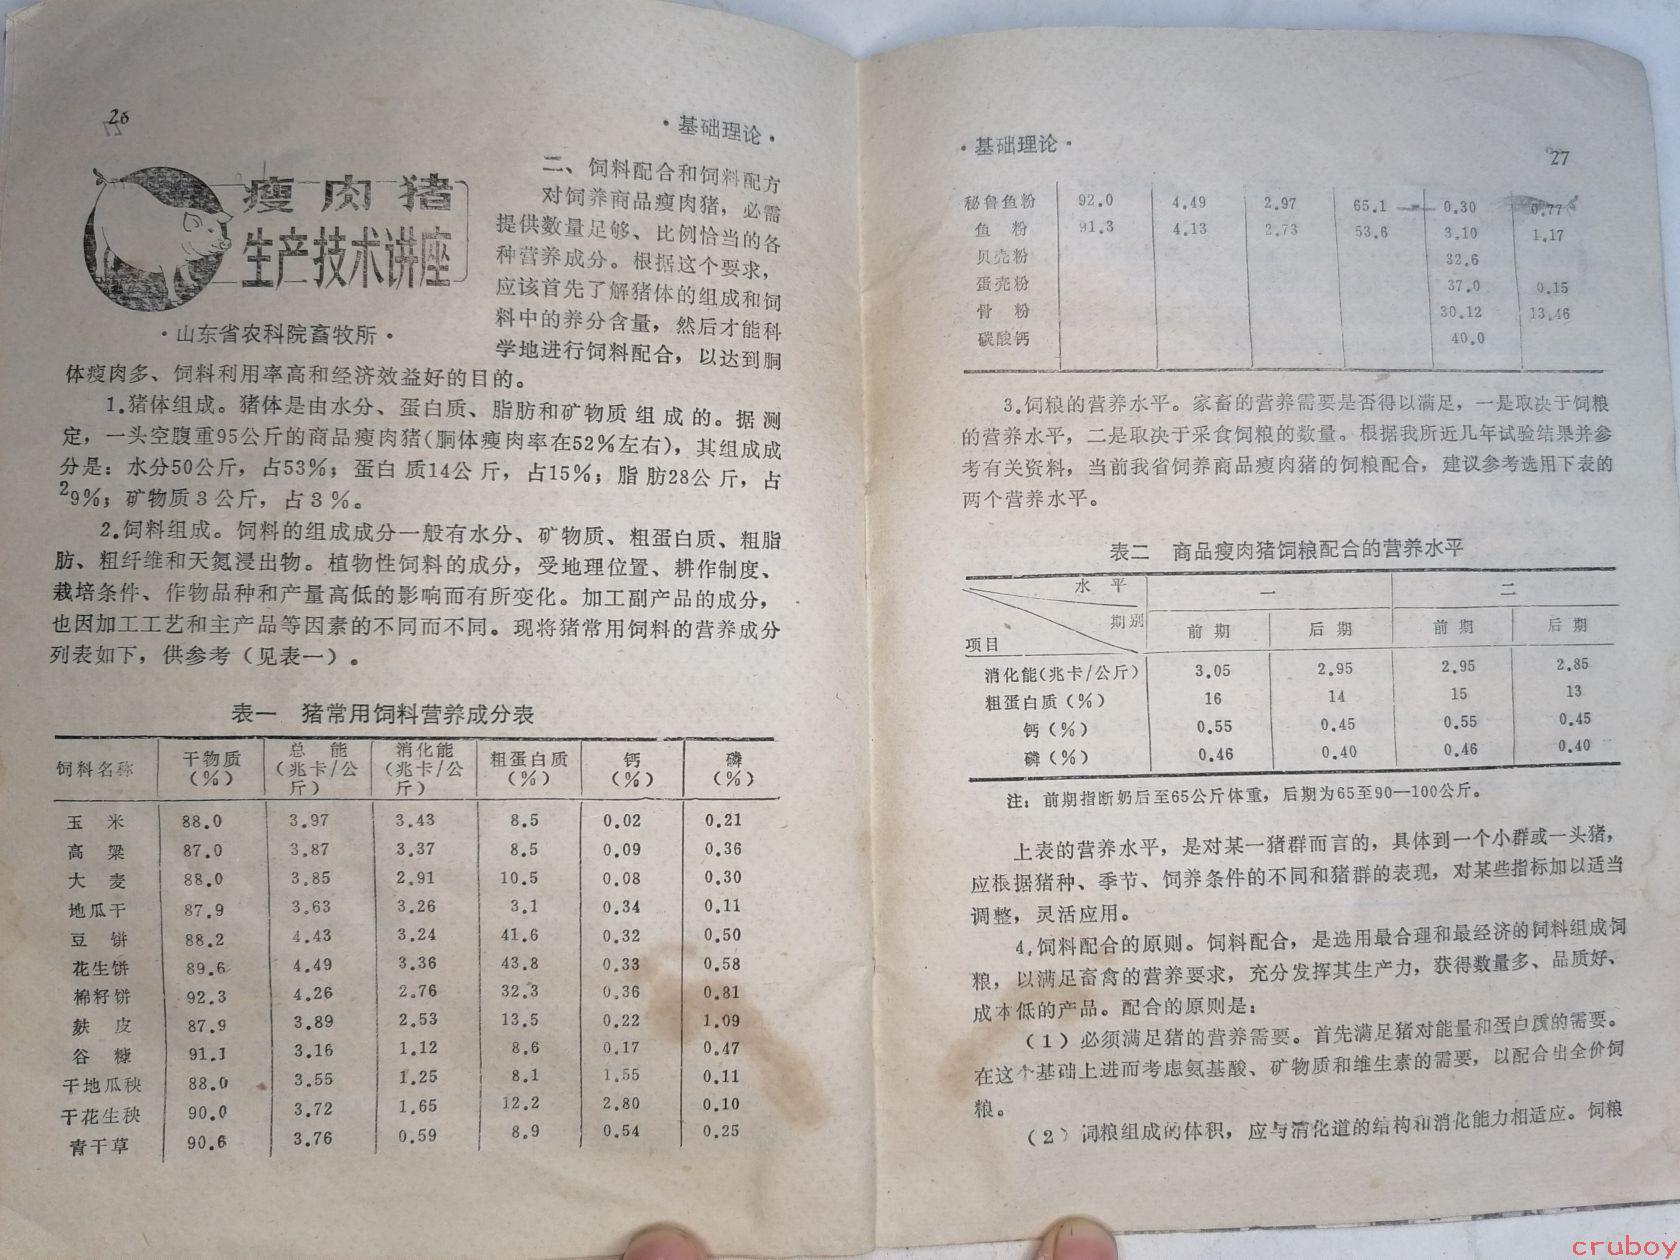 26
·基础理论·
瘦肉猪
生产技术讲座
·山东省农科院畜牧所·
二、饲料配合和饲料配方
对饲养商品瘦肉猪，必需
提供数量足够、比例恰当的各
种营养成分。根据这个要求，
应该首先了解猪体的组成和饲
料中的养分含量，然后才能科
学地进行饲料配合，以达到胴
体瘦肉多、饲料利用率高和经济效益好的目的。
1.猪体组成。猪体是由水分、蛋白质、脂肪和矿物质组成的。据测
定，一头空腹重95公斤的商品瘦肉猪(胴体瘦肉率在52%左右)，其组成成
分是：水分50公斤，占53%；蛋白质14公斤，占15%；脂肪28公斤，占
29%；矿物质3公斤，占3%。
2.饲料组成。饲料的组成成分一般有水分、矿物质、粗蛋白质、粗脂
肪、粗纤维和天氮浸出物。植物性饲料的成分，受地理位置、耕作制度、
栽培条件、作物品种和产量高低的影响而有所变化。加工副产品的成分，
也因加工工艺和主产品等因素的不同而不同。现将猪常用饲料的营养成分
列表如下，供参考（见表一）。
表一 猪常用饲料营养成分表
饲料名称 干物质(%) 总能(兆卡/公斤) 消化能(兆卡/公斤) 粗蛋白质(%) 钙(%) 磷(%)
玉米 88.0 3.97 3.43 8.5 0.02 0.21
高粱 87.0 3.87 3.37 8.5 0.09 0.36
大麦 88.0 3.85 2.91 10.5 0.08 0.30
地瓜干 87.9 3.63 3.26 3.1 0.34 0.11
豆饼 88.2 4.43 3.24 41.6 0.32 0.50
花生饼 89.6 4.49 3.36 43.8 0.33 0.58
棉籽饼 92.3 4.26 2.76 32.3 0.36 0.81
麸皮 87.9 3.89 2.53 13.5 0.22 1.09
谷糠 91.1 3.16 1.12 8.6 0.17 0.47
干地瓜秧 88.0 3.55 1.25 8.1 1.55 0.11
干花生秧 90.0 3.72 1.65 12.2 2.80 0.10
青干草 90.6 3.76 0.59 8.9 0.54 0.25
·基础理论·
27
秘鲁鱼粉 92.0 4.49 2.97 65.1 0.30 0.77
鱼粉 91.3 4.13 2.73 53.6 3.10 1.17
贝壳粉 32.6
蛋壳粉 37.0 0.15
骨粉 30.12 13.46
碳酸钙 40.0
3.饲粮的营养水平。家畜的营养需要是否得以满足，一是取决于饲粮
的营养水平，二是取决于采食饲粮的数量。根据我所近几年试验结果并参
考有关资料，当前我省饲养商品瘦肉猪的饲粮配合，建议参考选用下表的
两个营养水平。
表二 商品瘦肉猪饲粮配合的营养水平
水平 一 二
项目 期别 前期 后期 前期 后期
消化能(兆卡/公斤) 3.05 2.95 2.95 2.85
粗蛋白质(%) 16 14 15 13
钙(%) 0.55 0.45 0.55 0.45
磷(%) 0.46 0.40 0.46 0.40
注：前期指断奶后至65公斤体重，后期为65至90—100公斤。
上表的营养水平，是对某一猪群而言的，具体到一个小群或一头猪，
应根据猪种、季节、饲养条件的不同和猪群的表现，对某些指标加以适当
调整，灵活应用。
4.饲料配合的原则。饲料配合，是选用最合理和最经济的饲料组成饲
粮，以满足畜禽的营养要求，充分发挥其生产力，获得数量多、品质好、
成本低的产品。配合的原则是：
(1)必须满足猪的营养需要。首先满足猪对能量和蛋白质的需要。
在这个基础上进而考虑氨基酸、矿物质和维生素的需要，以配合出全价饲
粮。
(2)词粮组成的体积，应与消化道的结构和消化能力相适应。饲粮
cruboy